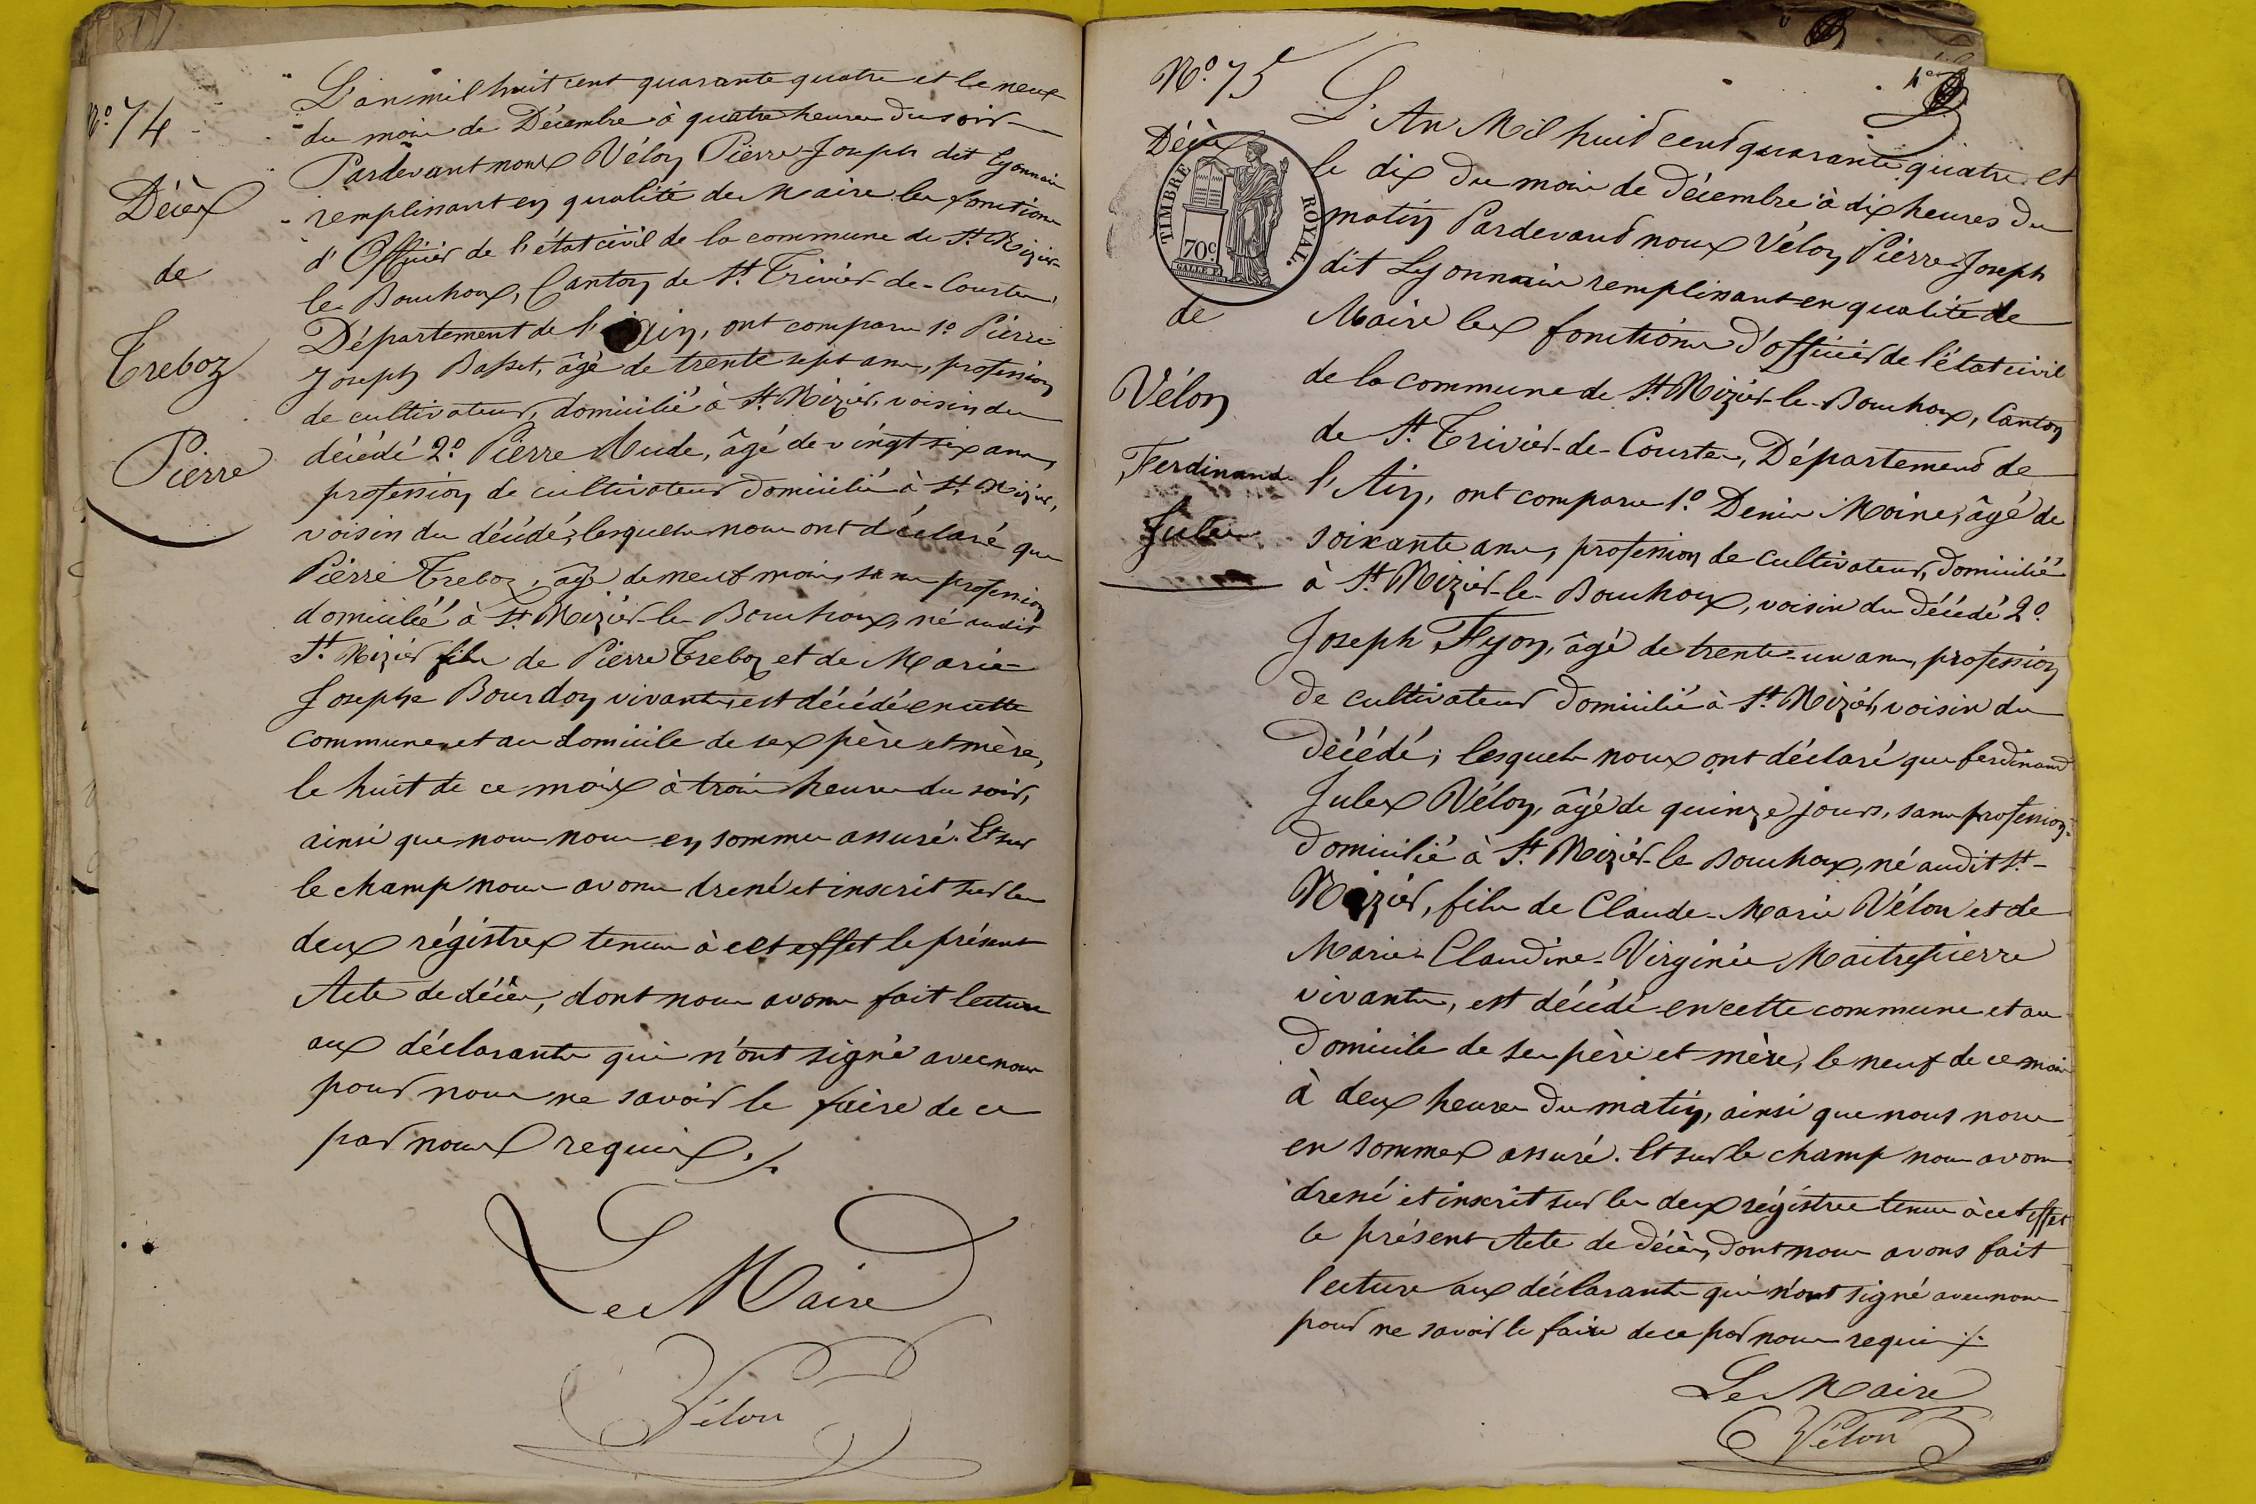 N.o 74
Décès
de
Treboz
Pierre
L'an mil huit cent quarante quatre et le neuf
du mois de Décembre à quatre heures du soir
Pardevant nous Vélon Pierre-Joseph dit Lyonnais
remplissant en qualité de Maire les fonctions
d'Officier de l'état civil de la commune de St. Nizier-
le-Bouchoux, Canton de St. Trivier-de-Courtes,
Département de l'Ain, ont comparu 1.o Pierre
Joseph Basset, âgé de trente sept ans, profession
de cultivateur, domicilié à St. Nizier, voisin du
décédé 2.o Pierre Mude, âgé de vingt six ans,
profession de cultivateur domicilié à St. Nizier,
voisin du décédé; lesquels nous ont déclaré que
Pierre Treboz, âgé de neuf mois, sans profession
domicilié à St. Nizier-le-Bouchoux, né audit
St. Nizier fils de Pierre Treboz et de Marie-
Josephe Bourdon vivants, est décédé en cette
commune et au domicile de ses père et mère,
le huit de ce mois à trois heures du soir,
ainsi que nous nous en sommes assuré. Et sur
le champ nous avons dressé et inscrit sur les
deux régistres tenus à cet effet le présent
Acte de décès, dont nous avons fait lecture
aux déclarants qui n'ont signé avec nous
pour nous ne savoir le faire de ce
par nous requis ./.
Le Maire
Vélon
N.o 75
Décès
TIMBRE ROYAL.
70c
de
Vélon
Ferdinand
Jules
L'An Mil huit cent quarante quatre et
le dix du mois de Décembre à dix heures du
matin Pardevant nous Vélon Pierre-Joseph
dit Lyonnais remplissant en qualité de
Maire les fonctions d'officier de l'état civil
de la commune de St. Nizier-le-Bouchoux, Canton
de St. Trivier-de-Courtes, Département de
l'Ain, ont comparu 1.o Denis Moine, âgé de
soixante ans, profession de cultivateur, domicilié
à St. Nizier-le-Bouchoux, voisin du décédé 2.o
Joseph Fyon, âgé de trente-un ans, profession
de cultivateur domicilié à St. Nizier, voisin du
décédé; lesquels nous ont déclaré que ferdinand
Jules Vélon, âgé de quinze jours, sans profession
domicilié à St. Nizier-le Bouchoux, né audit St-
Nizier, fils de Claude-Marie Vélon et de
Marie-Claudine-Virginie Maitrepierre
vivants, est décédé en cette commune et au
domicile de ses père et mère, le neuf de ce mois
à deux heures du matin, ainsi que nous nous
en sommes assuré. Et sur le champ nous avons
dressé et inscrit sur les deux régistres tenus à cet effet
le présent Acte de décès, dont nous avons fait
lecture aux déclarants qui n'ont signé avec nous
pour ne savoir le faire de ce par nous requis ./.
Le Maire
Vélon